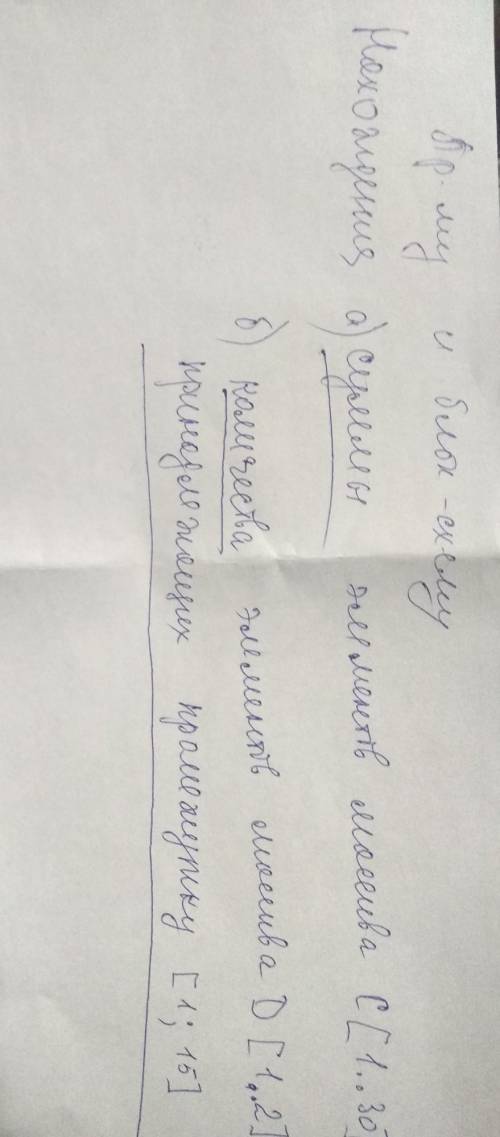 Пр-му и блок-схему
Нахождения а) суммы элементов массива C[1..30
б) количества элементов массива D[1..2]
принадлежащих промежутку [1; 15]